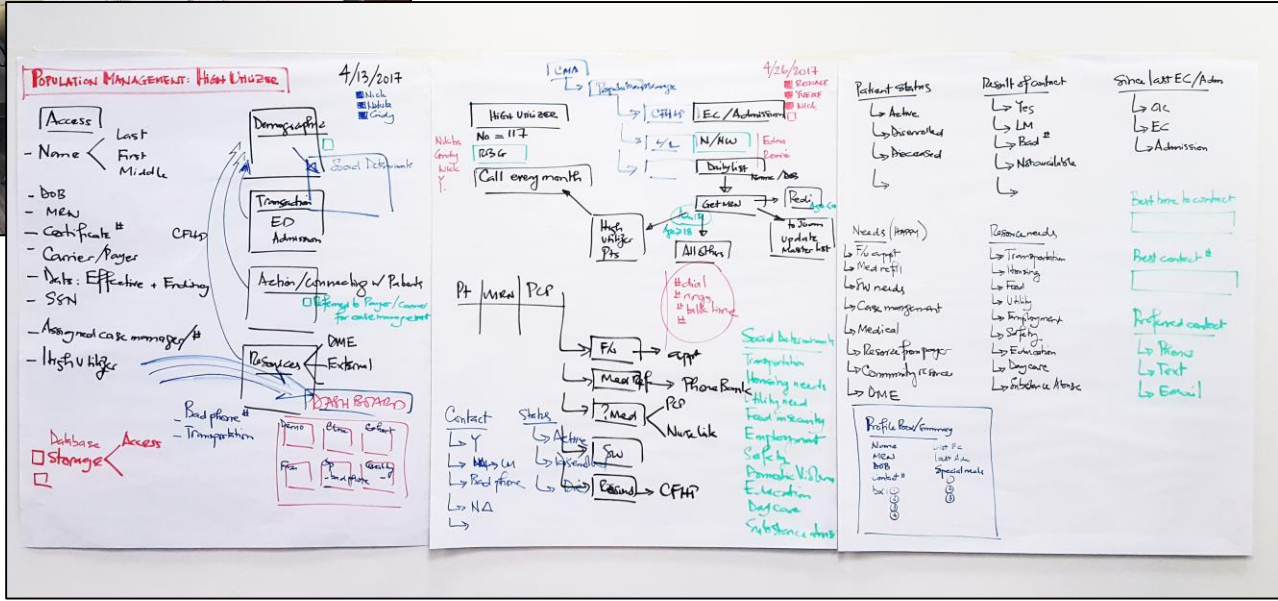 POPULATION MANAGEMENT: HIGH UTILIZER
4/13/2017
Nick
Cindy
Access
- Name
Last
First
Middle
- DOB
- MRN
- Certificate #
CFHP
- Carrier/Payer
- Date: Effective + Ending
- SSN
- Assigned case manager/#
- High Utilizer
Demographic
Social Determinants
Transaction
ED
Admission
Action/connecting w/ Patients
Referred to Payer/Carrier
for case management
Resources
DME
External
DASHBOARD
- Bad phone #
- Transportation
Database
Storage
Access
Demo
Bad phone
CMA
Population Manage
4/26/2017
Yusuf
Nick
HIGH UTILIZER
No = 117
RBG
Call every month
Cindy
Nick
Y.
CFHP
EC/Admission
N/NW
Edna
Daily list
Name/DOB
Get MRN
Redi
Age ≥18
High
Utilizer
Pts
All others
update
Master list
# dial
# rings
# talk time
#
Pt
MRN
PCP
F/U
appt
Med Ref
Phone Bank
? Med
PCP
SW
CFHP
Contact
Y
LM
Bad phone
NA
Status
Active
Disenrolled
Social Determinants
Transportation
Housing needs
Utility need
Food insecurity
Employment
Safety
Domestic Violence
Education
Day care
Substance abuse
Patient Status
Active
Disenrolled
Deceased
Result of contact
Yes
LM
Bad #
Not available
Since last EC/Adm
EC
Admission
Needs (HAPPY)
F/u appt
Med refill
SW needs
Case management
Medical
Resource from payer
Community resource
DME
Resource needs
Transportation
Housing
Food
Utility
Employment
Safety
Education
Day care
Substance Abuse
Best time to contact
Best contact #
Preferred contact
Phone
Text
Email
Name
MRN
DOB
Contact #
Last EC
Last Adm
Special needs